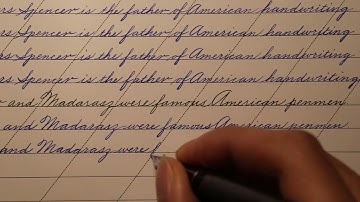 rs Spencer is the father of American handwriting
rs Spencer is the father of American handwriting
rs Spencer is the father of American handwriting
rs Spencer is the father of American handwriting
r and Madarasz were famous American penmen
and Madarasz were famous American penmen
and Madarasz were f